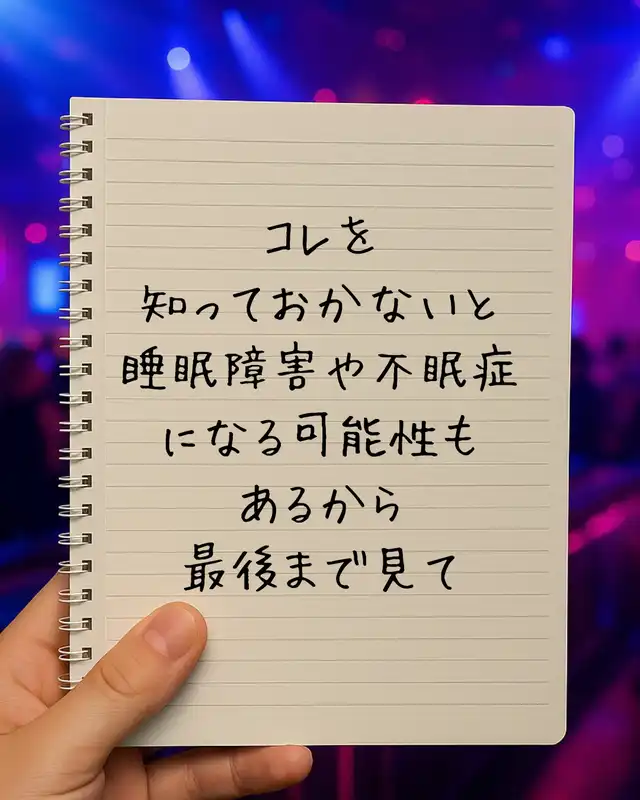 コレを
知っておかないと
睡眠障害や不眠症
になる可能性も
あるから
最後まで見て